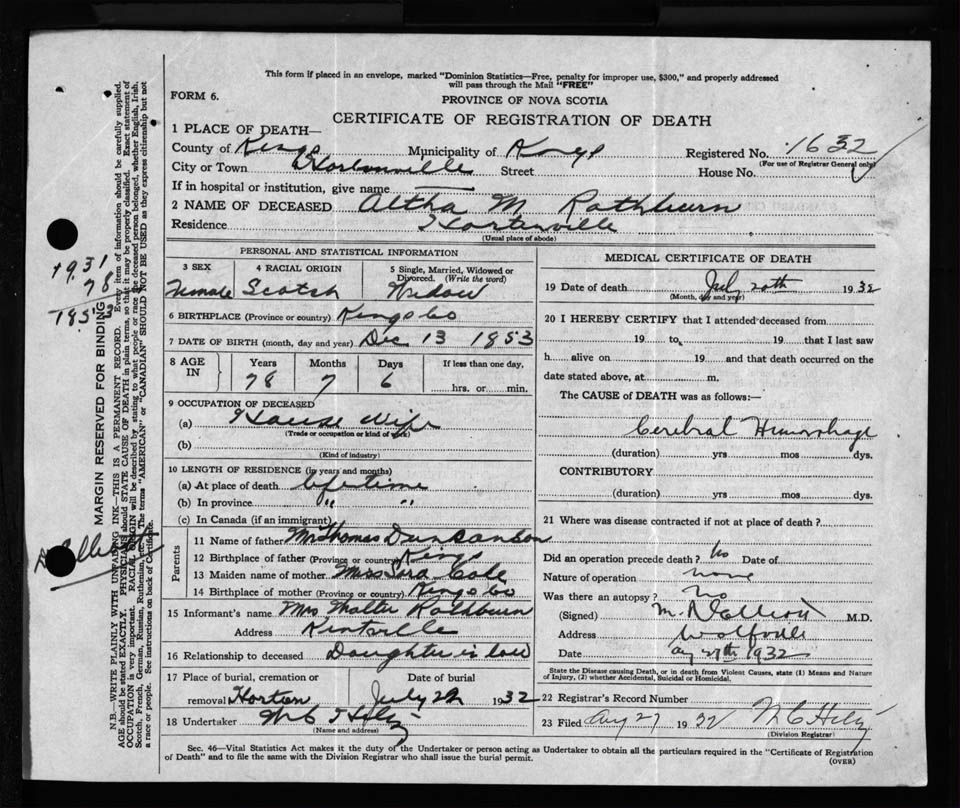 This form if placed in an envelope, marked "Dominion Statistics—Free, penalty for improper use, $300," and properly addressed
will pass through the Mail "FREE"
FORM 6.
PROVINCE OF NOVA SCOTIA
CERTIFICATE OF REGISTRATION OF DEATH
1 PLACE OF DEATH—
County of Kings Municipality of Kings Registered No. 1632
(For use of Registrar General only)
City or Town Hortonville Street House No.
If in hospital or institution, give name
2 NAME OF DECEASED Altha M Rathburn
Residence Hortonville
(Usual place of abode)
PERSONAL AND STATISTICAL INFORMATION
3 SEX 4 RACIAL ORIGIN 5 Single, Married, Widowed or Divorced. (Write the word)
Female Scotch Widow
6 BIRTHPLACE (Province or country) Kings Co
7 DATE OF BIRTH (month, day and year) Dec 13 1853
8 AGE IN Years Months Days If less than one day,
78 7 6 hrs. or min.
9 OCCUPATION OF DECEASED
(a) House Wife
(Trade or occupation or kind of work)
(b)
(Kind of industry)
10 LENGTH OF RESIDENCE (in years and months)
(a) At place of death lifetime
(b) In province " "
(c) In Canada (if an immigrant)
Parents
11 Name of father Mr Thomas Duncanson
12 Birthplace of father (Province or country) Kings
13 Maiden name of mother Mrs Cole
14 Birthplace of mother (Province or country) Kings Co
15 Informant's name Mrs Walter Rathburn
Address Kentville
16 Relationship to deceased Daughter in law
17 Place of burial, cremation or Date of burial
removal Horton July 1932
18 Undertaker W C
(Name and address)
MEDICAL CERTIFICATE OF DEATH
19 Date of death July 20th 1932
(Month, day and year)
20 I HEREBY CERTIFY that I attended deceased from
19 to 19 that I last saw
h alive on 19 and that death occurred on the
date stated above, at m.
The CAUSE of DEATH was as follows:—
Cerebral Hemorrhage
(duration) yrs mos dys.
CONTRIBUTORY
(duration) yrs mos dys.
21 Where was disease contracted if not at place of death?
Did an operation precede death? No Date of
Nature of operation none
Was there an autopsy? No
(Signed) M. R Elliott M.D.
Address Wolfville
Date Aug 27th 1932
State the Disease causing Death, or in death from Violent Causes, state (1) Means and Nature
of Injury, (2) whether Accidental, Suicidal or Homicidal.
22 Registrar's Record Number
23 Filed Aug 27 1932 W C
(Division Registrar)
Sec. 46—Vital Statistics Act makes it the duty of the Undertaker or person acting as Undertaker to obtain all the particulars required in the "Certificate of Registration
of Death" and to file the same with the Division Registrar who shall issue the burial permit.
(OVER)
MARGIN RESERVED FOR BINDING
N.B.—WRITE PLAINLY WITH UNFADING INK—THIS IS A PERMANENT RECORD. Every item of information should be carefully supplied.
AGE should be stated EXACTLY. PHYSICIANS should STATE CAUSE OF DEATH in plain terms, so that it may be properly classified. Exact statement of
OCCUPATION is very important. RACIAL ORIGIN will be described by stating to what people or race the deceased person belonged, whether English, Irish,
Scotch, French, German, Russian, Ruthenian, etc. The terms "AMERICAN" or "CANADIAN" SHOULD NOT BE USED as they express citizenship but not
a race or people. See instructions on back of Certificate.
1931
78
1853